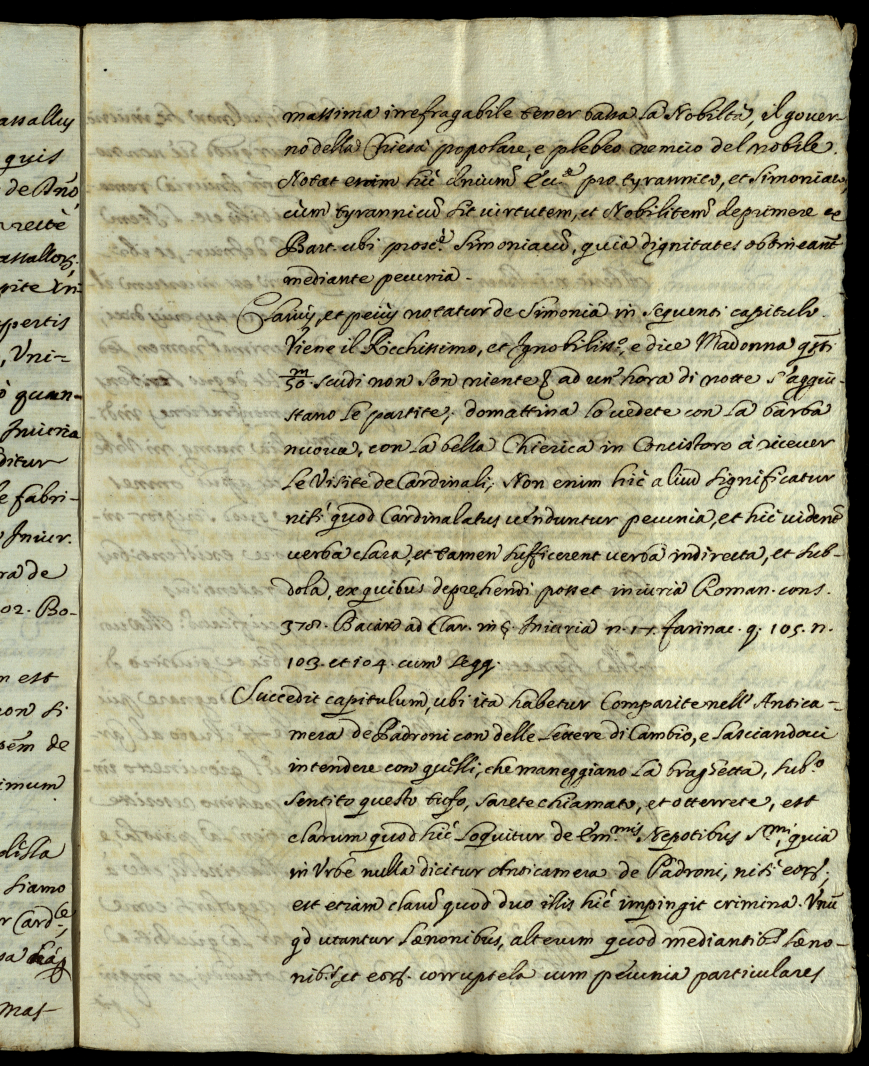 assallus
quis
de Año,
recte
assallor.
pite In-
xpertis
, Vni-
ò quan-
Iniuria
ditur
le fabri-
Iniur.
ra de
02. Bo-
m est
con si
de
imum
dista
siamo
r Card.le
sa
mas-
massima irrefragabile tener bassa la Nobiltà, il gouer-
no della Chiesa popolare, e plebeo nemico del nobile.
Notat enim hic pro tyrannico, et Simoniaco,
cùm tyrannicũ sit uirtutem, et Nobilitem deprimere ex
Bart. ubi prox.e Simoniacũ, quia dignitates obtineant
mediante pecunia.
Clarius, et peius notatur de Simonia in sequenti capitulo.
Viene il Ricchissimo, et Ignobiliss.o, e dice Madonna q̃sti
50.m scudi non son niente ad un'hora di notte s'aggiu-
stano le partite; domattina lo uedete con la barba
nuoua, con la bella Chierica in Concistoro à riceuer
le Visite de Cardinali; Non enim hic aliud significatur
nisi quod Cardinalatus uenduntur pecunia, et hic uident
uerba clara, et tamen sufficerent uerba indirecta, et sub-
dola, ex quibus deprehendi posset iniuria Roman. cons.
378. Baiard ad Clar. in §. Iniuria n. 17. Farinac. q. 105. n.
103. et 104. cum seqq.
Succedit capitulum, ubi ita habetur Comparite nell'Antica-
mera de Padroni con delle Lettere di Cambio, e lasciandoui
intendere con q̃lli, che maneggiano la braghetta, sub.o
sentito questo tufo, sarete chiamato, et otterrete, est
clarum quod hic loquitur de Em.mis Nepotibus S.mi, quia
in Vrbe nulla dicitur Anticamera de Padroni, nisi eor.;
est etiam clarũ quod duo illis hic impingit crimina. Vnũ
qd utantur Lænonibus, alterum quod mediantib. Læno-
nib. et eor. corruptela cum pecunia particulares